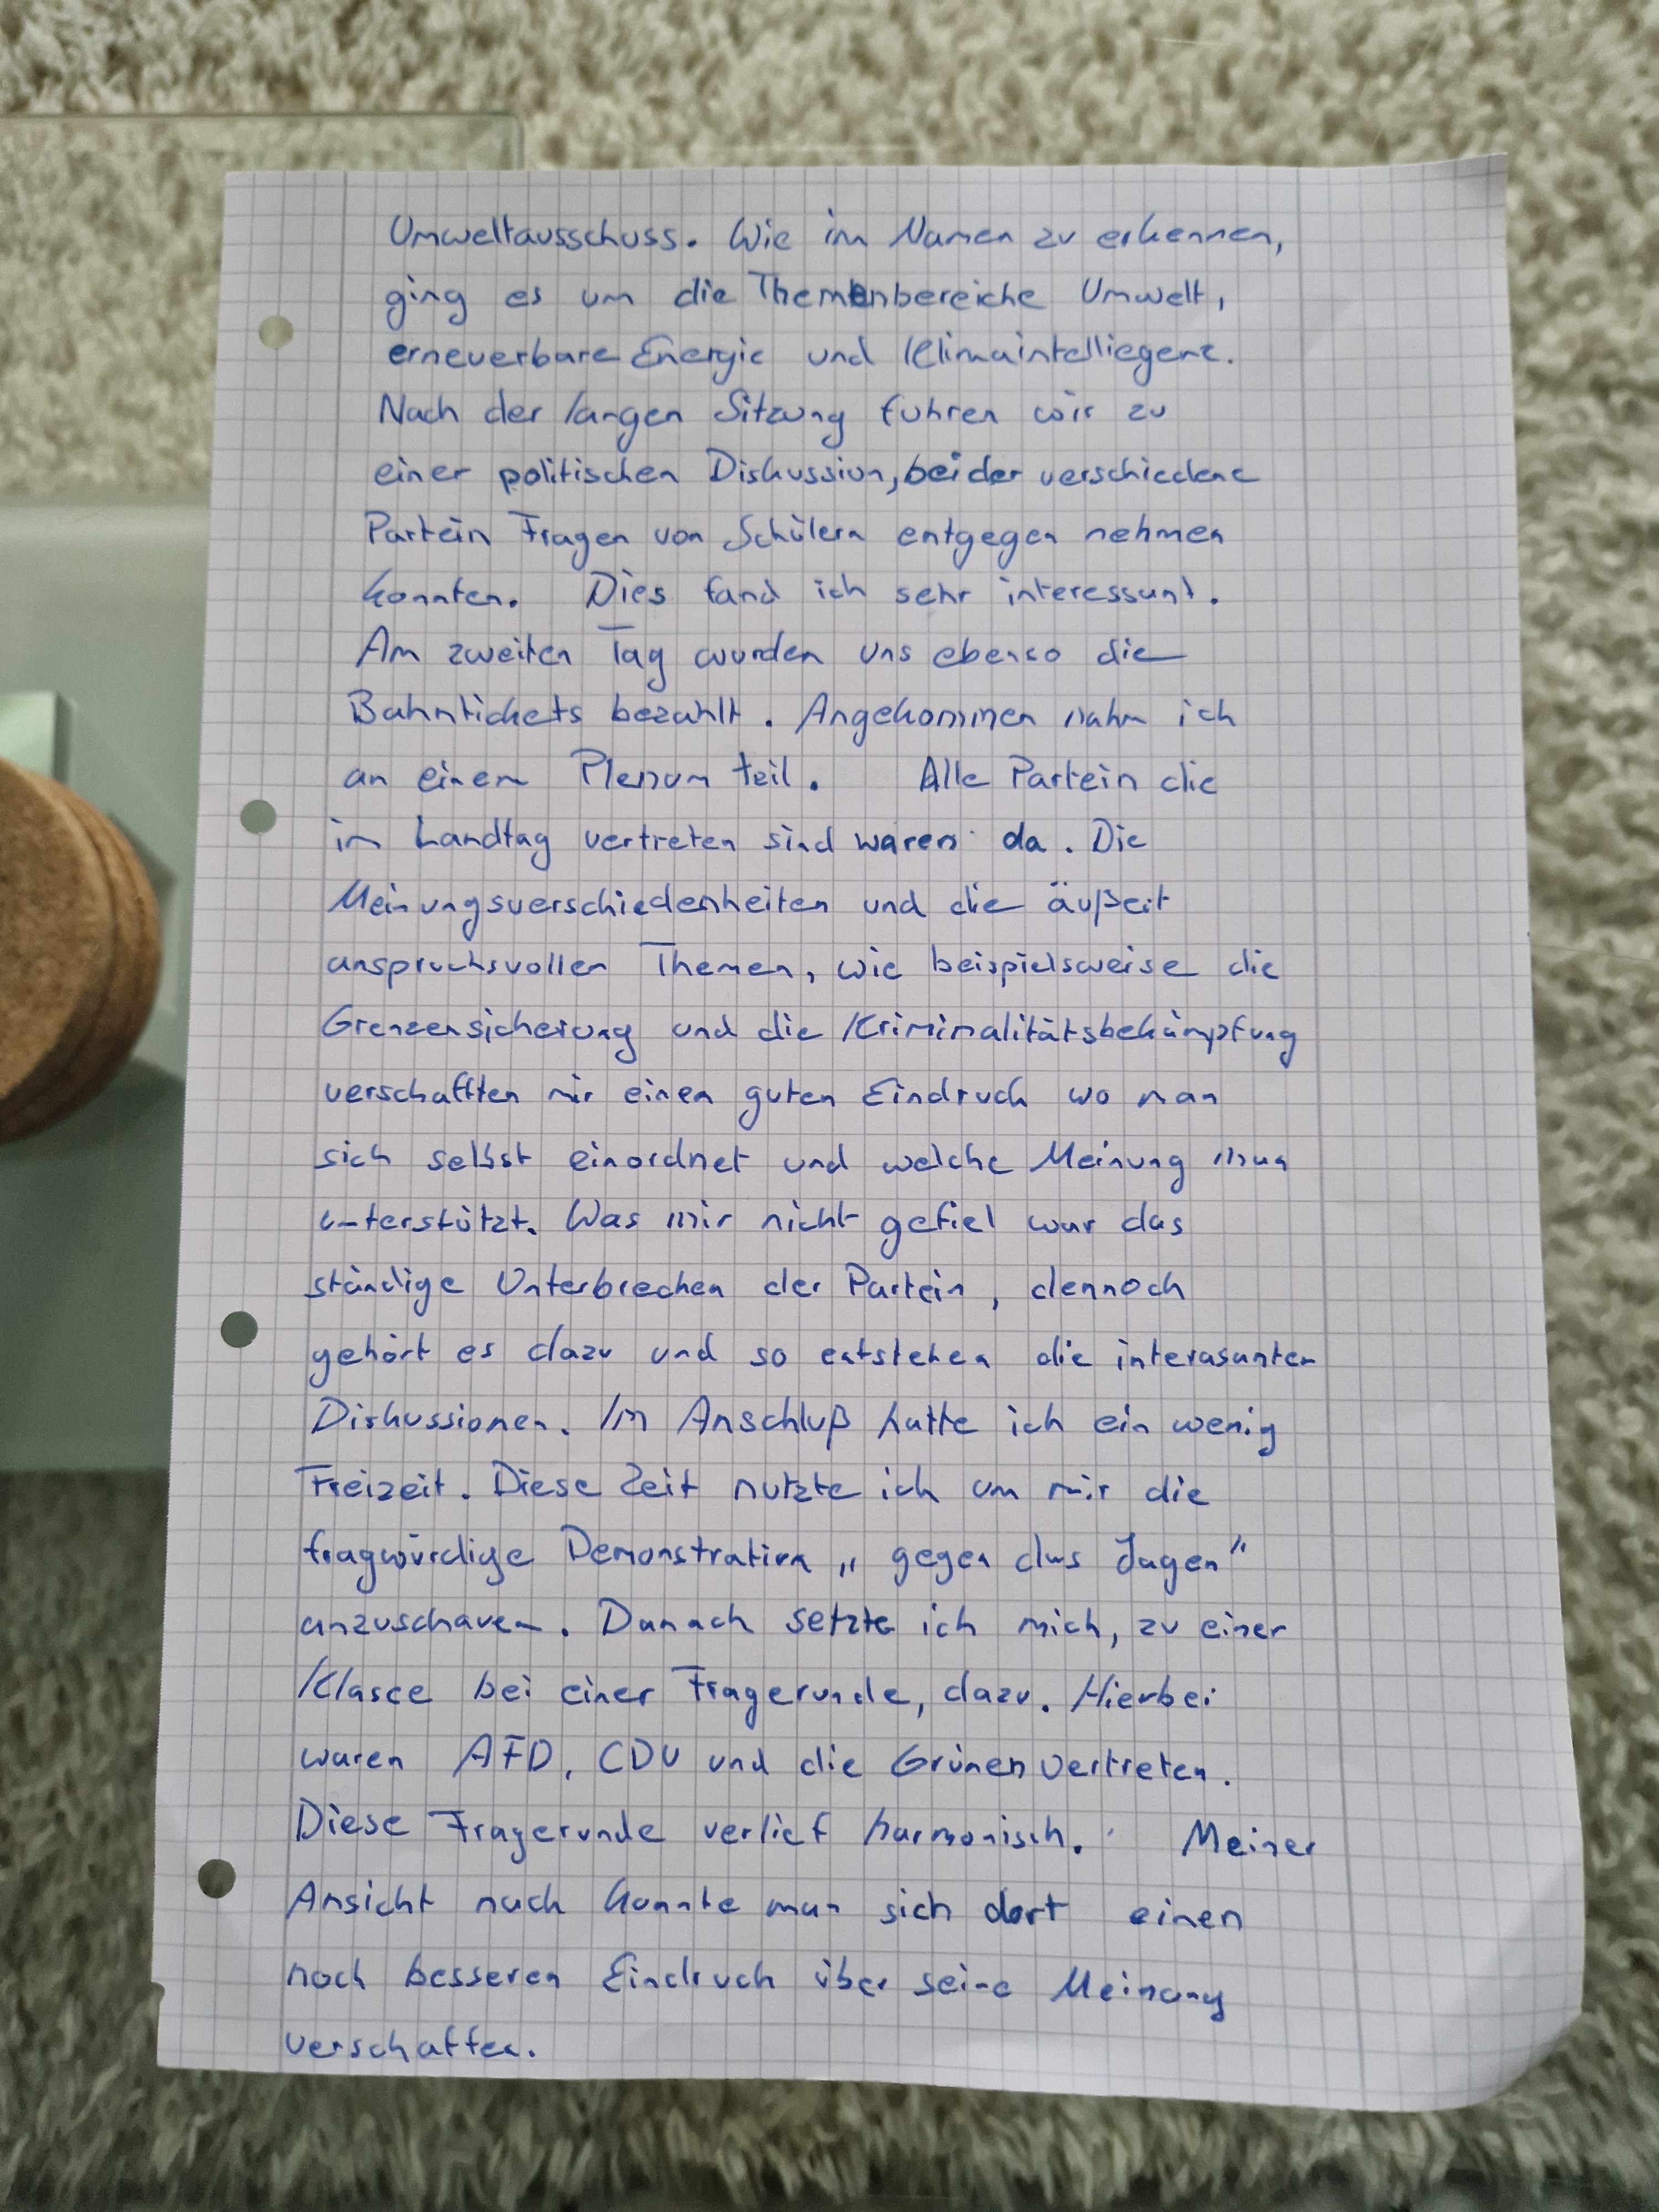 Umweltausschuss. Wie im Namen zu erkennen,
ging es um die Themenbereiche Umwelt,
erneuerbare Energie und Klimaintelliegenz.
Nach der langen Sitzung fuhren wir zu
einer politischen Diskussion, bei der verschiedene
Partein Fragen von Schülern entgegen nehmen
konnten. Dies fand ich sehr interessant.
Am zweiten Tag wurden uns ebenso die
Bahntickets bezahlt. Angekommen nahm ich
an einem Plenum teil. Alle Partein die
im Landtag vertreten sind waren da. Die
Meinungsverschiedenheiten und die äußerst
anspruchsvollen Themen, wie beispielsweise die
Grenzensicherung und die Kriminalitätsbekämpfung
verschafften mir einen guten Eindruck wo man
sich selbst einordnet und welche Meinung man
unterstützt. Was mir nicht gefiel war das
ständige Unterbrechen der Partein, dennoch
gehört es dazu und so entstehen die interasanten
Diskussionen. Im Anschluß hatte ich ein wenig
Freizeit. Diese Zeit nutzte ich um mir die
fragwürdige Demonstration „gegen das Jagen"
anzuschauen. Danach setzte ich mich, zu einer
Klasse bei einer Fragerunde, dazu. Hierbei
waren AFD, CDU und die Grünen vertreten.
Diese Fragerunde verlief harmonisch. Meiner
Ansicht nach konnte man sich dort einen
noch besseren Eindruck über seine Meinung
verschaffen.